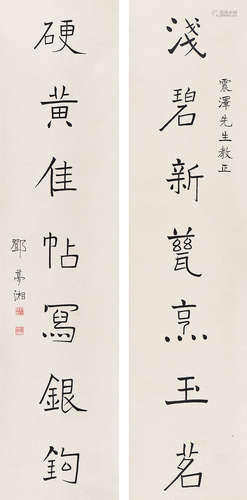 震澤先生教正
淺碧新甆烹玉茗
硬黃佳帖寫銀鉤
鄧夢湘